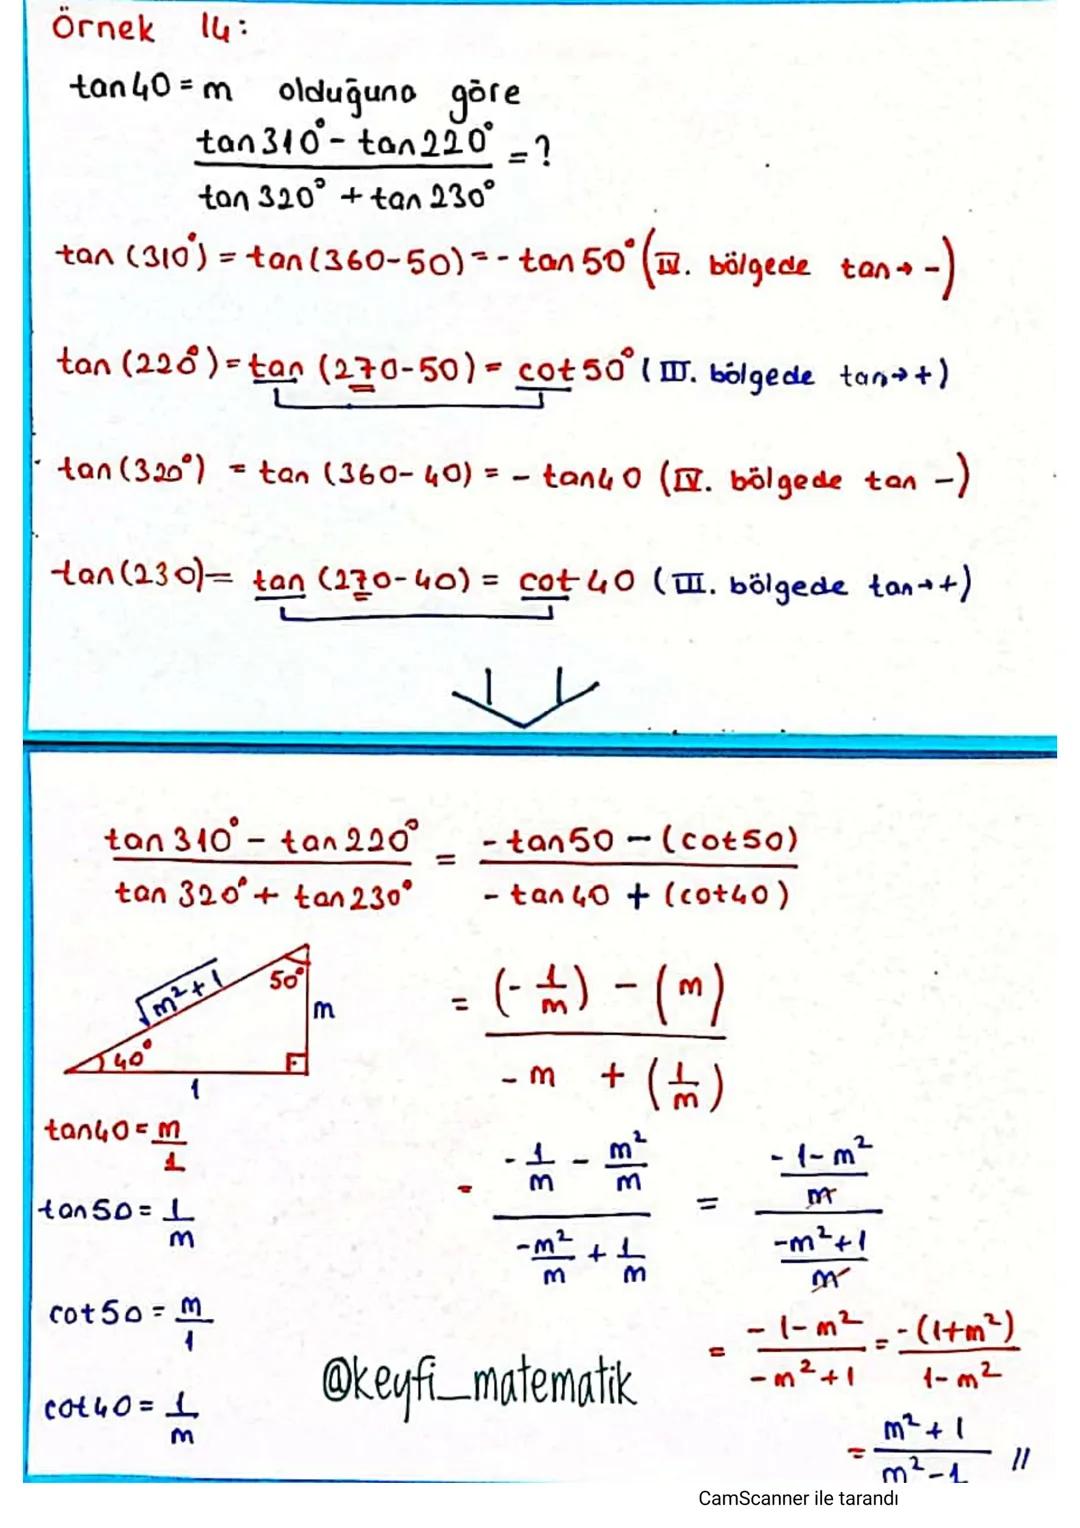 Örnek 14:
tan40 = m olduğuna göre
tan310° - tan220°
= ?
tan320° + tan230°
tan (310°) = tan(360-50) = - tan50° (IV. bölgede tan→ -)
tan (220°) = tan (270-50) = cot50° (III. bölgede tan→+)
tan(320°) = tan (360-40) = - tan40 (IV. bölgede tan -)
tan(230) = tan (270-40) = cot40 (III. bölgede tan→+)
tan310° - tan220° = -tan50 - (cot50)
tan320° + tan230° - tan40 + (cot40)
√m²+1 50° m 40° 1
= (-1/m) - (m)
-m + (1/m)
tan40 = m/1
tan50 = 1/m
cot50 = m/1
cot40 = 1/m
= -1/m - m²/m = -1-m²/m
-m²/m + 1/m -m²+1/m
= -1-m²/-m²+1 = -(1+m²)/1-m²
= m²+1/m²-1 //
@keyfi_matematik
CamScanner ile tarandı